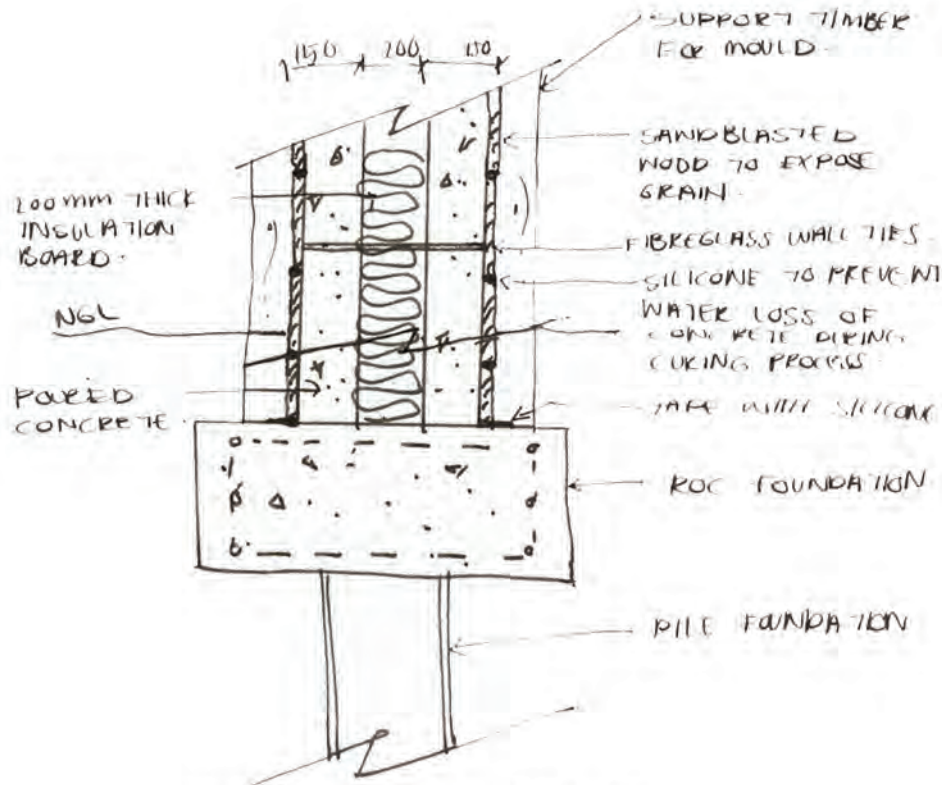 150 200 150
SUPPORT TIMBER
FOR MOULD.
SANDBLASTED
WOOD TO EXPOSE
GRAIN.
200mm THICK
INSULATION
BOARD.
FIBREGLASS WALL TIES
SILICONE TO PREVENT
WATER LOSS OF
CONCRETE DURING
CURING PROCESS
NGL
POURED
CONCRETE
TAPE WITH SILICONE
ROC FOUNDATION
PILE FOUNDATION